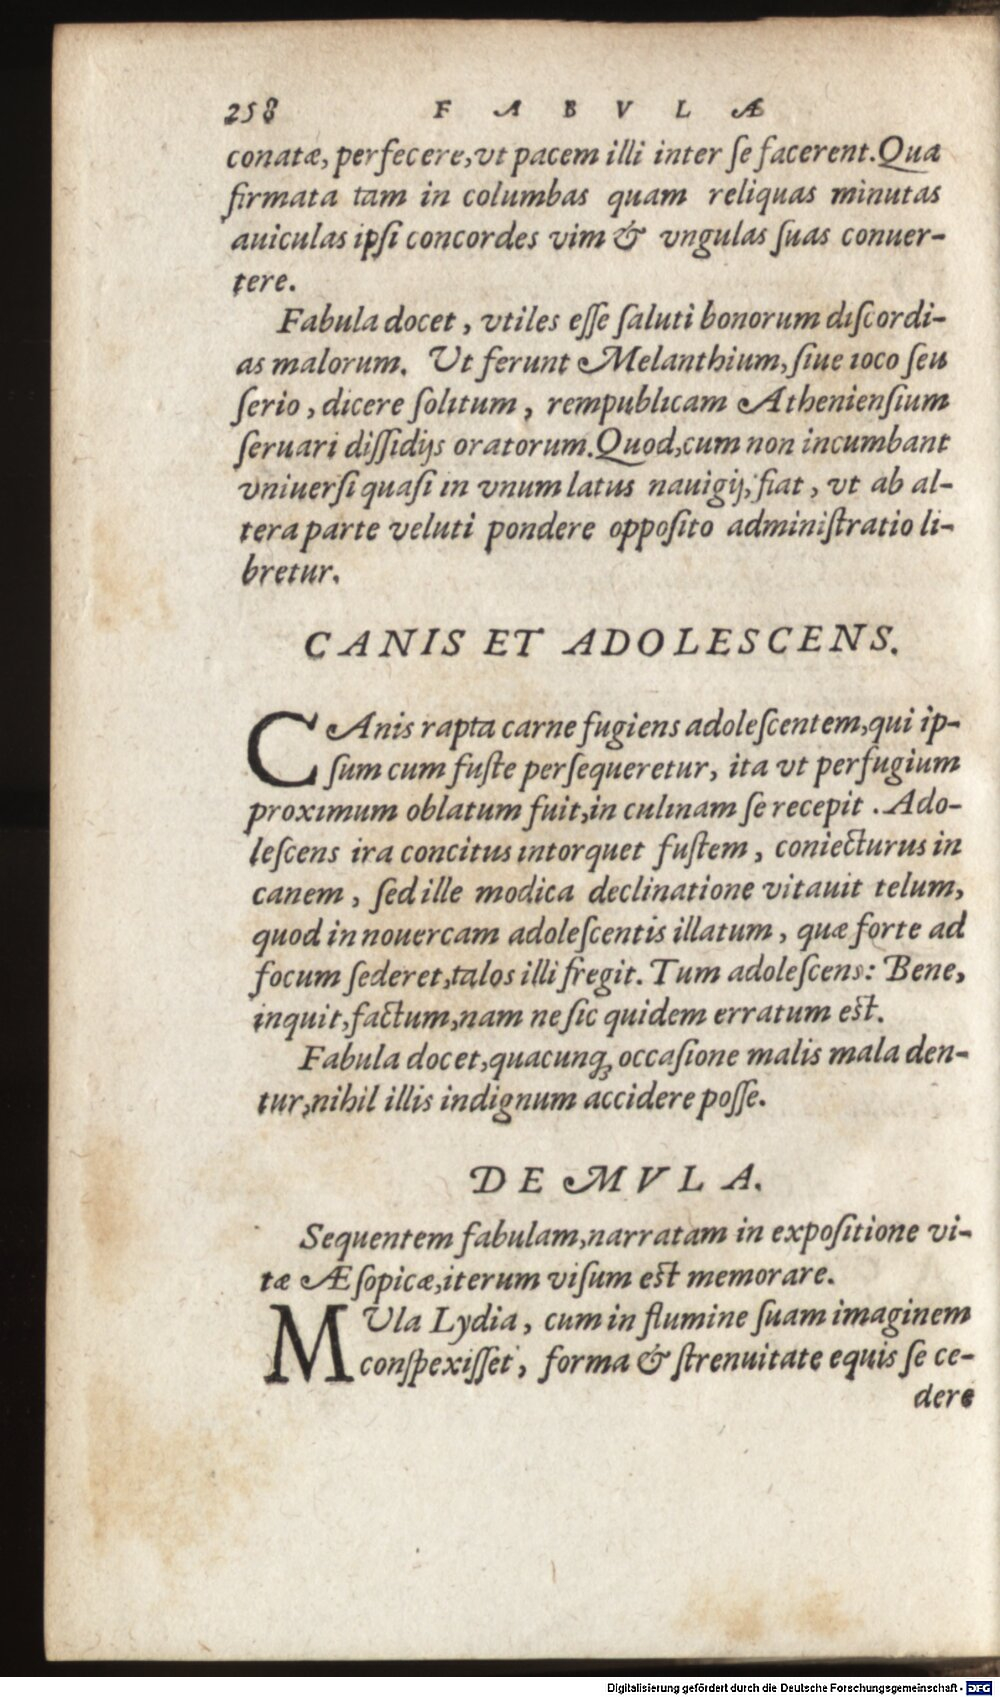 258 F A B V L Æ
conatæ, perfecere, vt pacem illi inter ſe facerent. Qua
firmata tam in columbas quam reliquas minutas
auiculas ipſi concordes vim & vngulas ſuas conuer-
tere.
Fabula docet, vtiles eſſe ſaluti bonorum diſcordi-
as malorum. Ut ferunt Melanthium, ſiue ioco ſeu
ſerio, dicere ſolitum, rempublicam Athenienſium
ſeruari diſſidijs oratorum. Quod, cum non incumbant
vniuerſi quaſi in vnum latus nauigij, fiat, vt ab al-
tera parte veluti pondere oppoſito adminiſtratio li-
bretur.
CANIS ET ADOLESCENS.
CAnis rapta carne fugiens adoleſcentem, qui ip-
ſum cum fuſte perſequeretur, ita vt perfugium
proximum oblatum fuit, in culinam ſe recepit. Ado-
leſcens ira concitus intorquet fuſtem, coniecturus in
canem, ſed ille modica declinatione vitauit telum,
quod in nouercam adoleſcentis illatum, quæ forte ad
focum ſederet, talos illi fregit. Tum adoleſcens: Bene,
inquit, factum, nam ne ſic quidem erratum eſt.
Fabula docet, quacunq; occaſione malis mala den-
tur, nihil illis indignum accidere poſſe.
DE MVLA.
Sequentem fabulam, narratam in expoſitione vi-
tæ Æſopicæ, iterum viſum eſt memorare.
MUla Lydia, cum in flumine ſuam imaginem
conſpexiſſet, forma & ſtrenuitate equis ſe ce-
dere
Digitalisierung gefördert durch die Deutsche Forschungsgemeinschaft - DFG